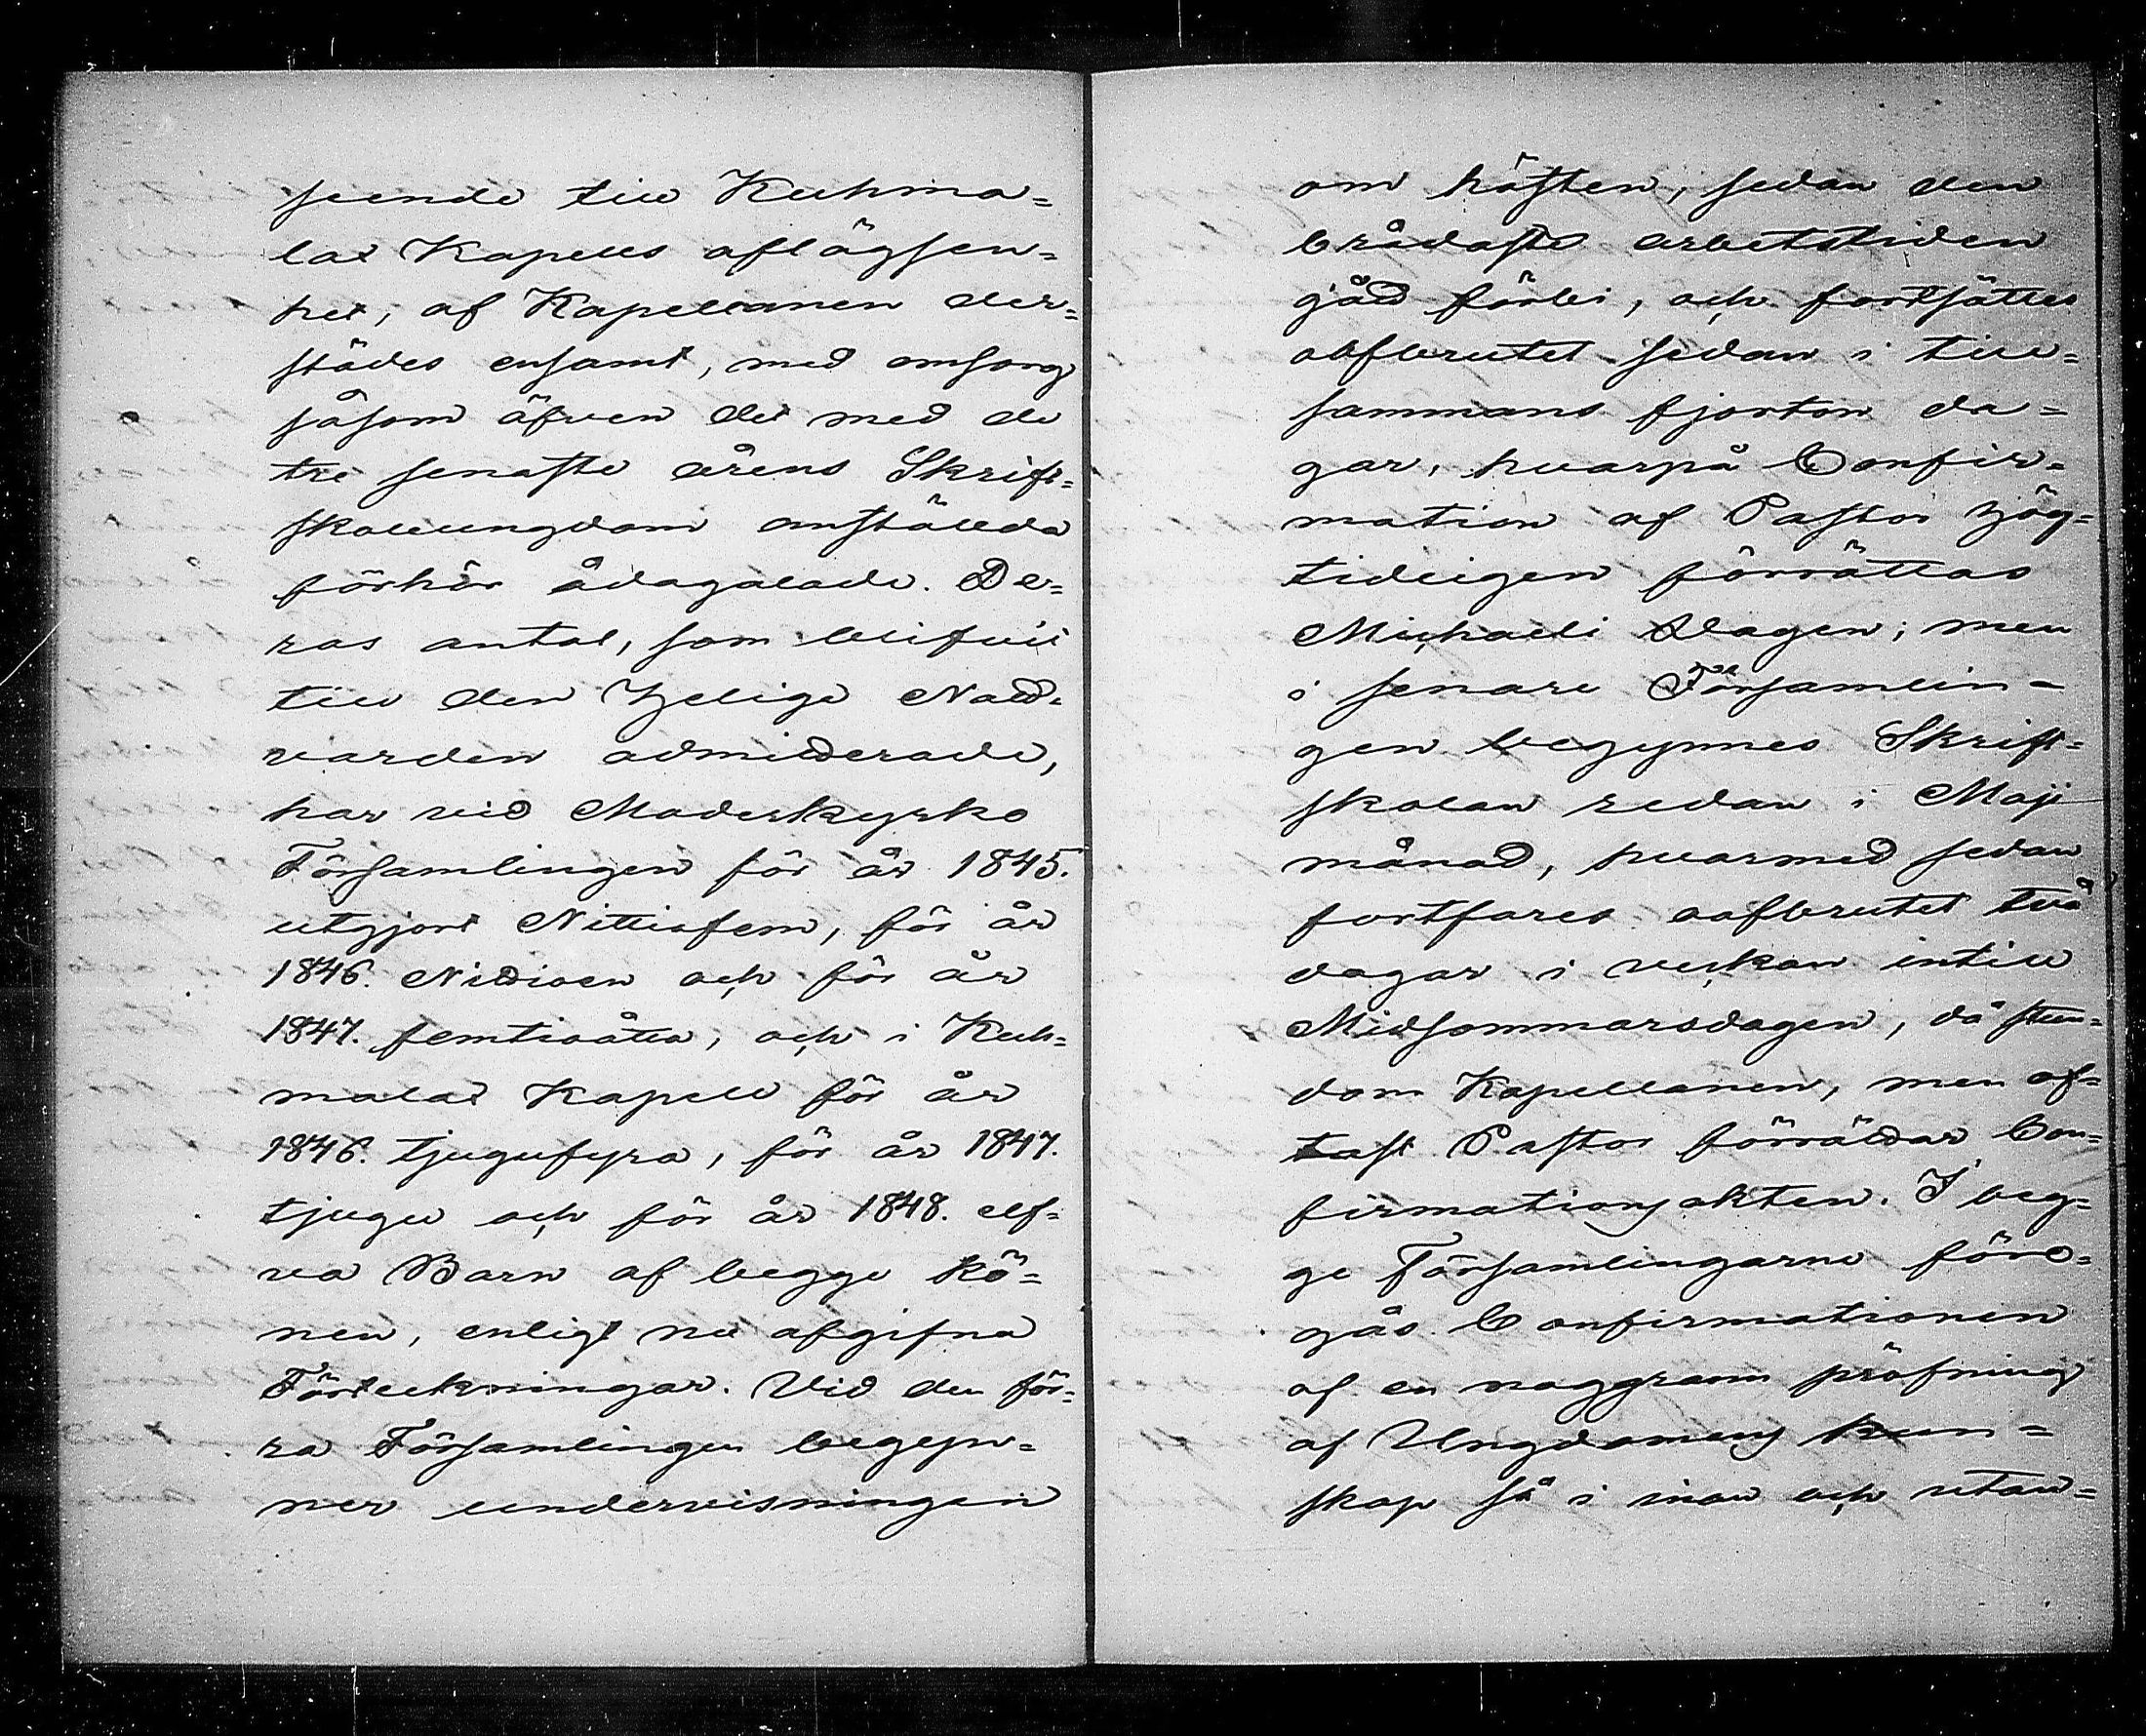 seende till Kuhma=
lax Kapells aflägsen=
het, af Kapellanen der=
städes ensamt, med omsorg
såsom äfven det med de
tre senaste årens Skrift=
skoleungdom anställda
förhör ådagalade. De=
ras antal, som blifvit
till den Helige Natt=
varden admitterade,
har vid Moderkyrko
Församlingen för år 1845.
utgjort Nittiofem, för år
1846. Nittioen och för år
1847. femtioåtta, och i Kuh=
malax Kapell för år
1846. tjugufyra, för år 1847.
tjugu och för år 1848. elf=
va Barn af begge Kö=
nen, enligt nu afgifna
Förteckningar. Vid den för=
ra Församlingen begyn=
ner undervisningen
om hösten, sedan den
brådaste arbetstiden
gått förbi, och fortsättes
oafbrutet sedan i till=
sammans fjorton da=
gar, hvarpå Confir=
mation af Pastor hög=
tidligen förrättas
Michaeli Dagen; men
i senare Församlin=
gen begynnes Skrift=
skolan redan i Maji
månad, hvarmed sedan
fortfares oafbrutet två
dagar i veckan intill
Midsommarsdagen, då stun=
dom Kapellanen, men of=
tast Pastor förrättar Con=
firmationsakten. I beg=
ge Församlingarne före=
gås Confirmationen
af en noggrann pröfning
af Ungdomens kun=
skap så i innan och utan=